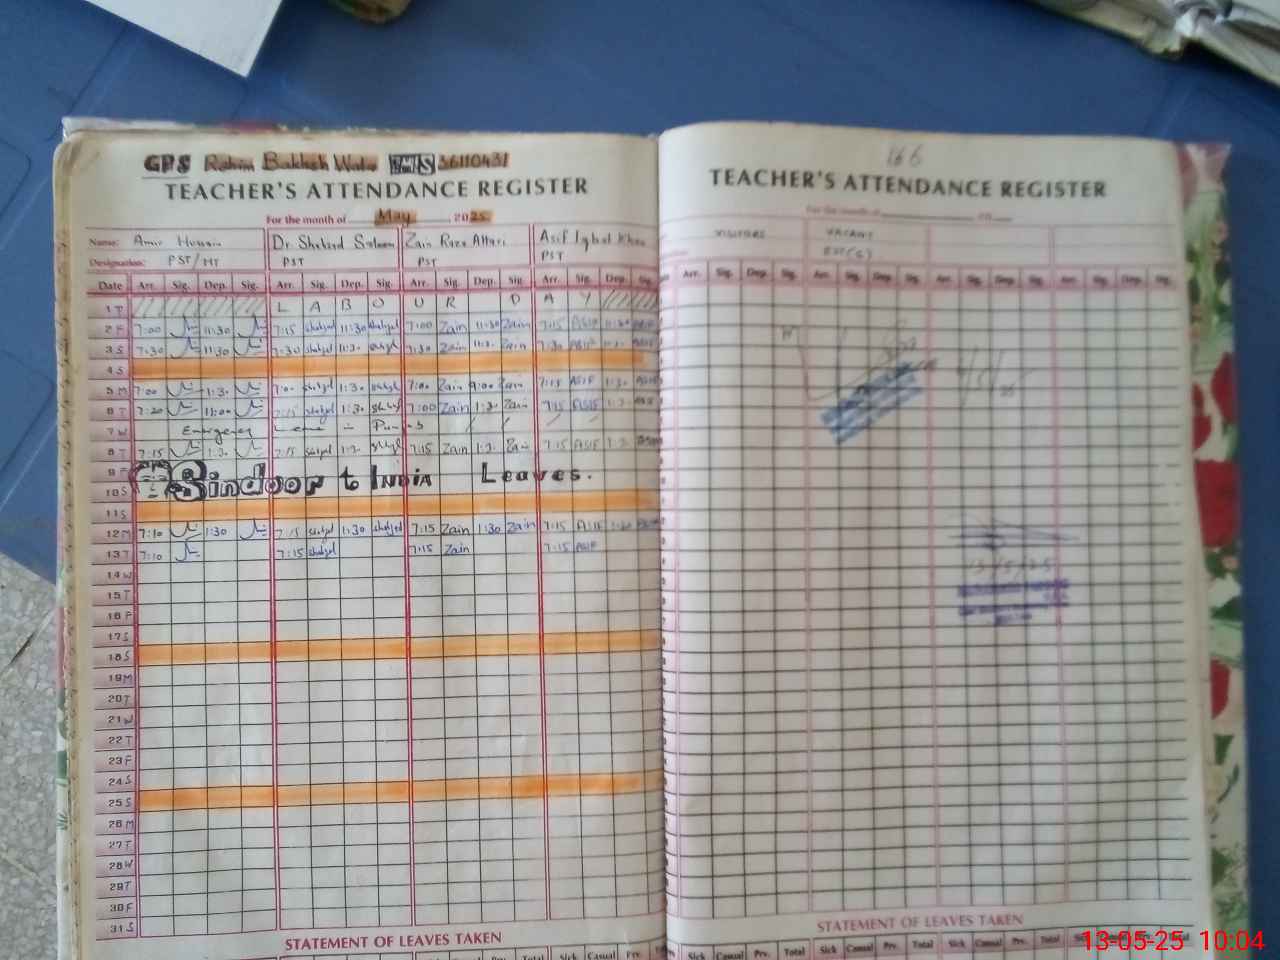 GPS Rahim Bakhsh Wala EMIS 36110431
TEACHER'S ATTENDANCE REGISTER
For the month of May 2025
Name: Amir Hussain Dr. Shahzad Saleem Zain Raza Attari Asif Iqbal Khan
Designation: PST/HT PST PST PST
Date Arr. Sig. Dep. Sig. Arr. Sig. Dep. Sig. Arr. Sig. Dep. Sig. Arr. Sig. Dep. Sig.
1 T L A B O U R D A Y
2 F 7:00 11:30 7:15 11:30 7:00 Zain 11:30 Zain 7:15 ASIF 11:30
3 S 7:30 11:30 7:30 11:30 7:30 Zain 11:30 Zain 7:30 ASIF
4 S
5 M 7:00 1:30 7:00 1:30 7:00 Zain 9:00 Zain 7:15 ASIF 1:30
6 T 7:20 11:00 7:15 1:30 7:00 Zain 1:30 Zain 7:15 ASIF
7 W Emergency Leave in
8 T 7:15 1:30 7:15 1:30 7:15 Zain 1:30 Zain 7:15 ASIF 1:30
9 F Sindoor to INDIA Leaves.
10 S
11 S
12 M 7:10 1:30 7:15 1:30 7:15 Zain 1:30 Zain 7:15 ASIF 1:30
13 T 7:10 7:15 7:15 Zain 7:15 ASIF
14 W
15 T
16 F
17 S
18 S
19 M
20 T
21 W
22 T
23 F
24 S
25 S
26 M
27 T
28 W
29 T
30 F
31 S
STATEMENT OF LEAVES TAKEN
Sick Casual Prv. Total Sick Casual Prv. Total Sick Casual Prv. Total Sick Casual Prv.
166
TEACHER'S ATTENDANCE REGISTER
For the month of 20
VISITORS VACANT
POST(S)
Arr. Sig. Dep. Sig. Arr. Sig. Dep. Sig. Arr. Sig. Dep. Sig. Arr. Sig. Dep. Sig.
13/5/25
STATEMENT OF LEAVES TAKEN
Sick Casual Prv. Total Sick Casual Prv. Total Sick Casual Prv. Total Sick Casual Prv. Total
13-05-25 10:04